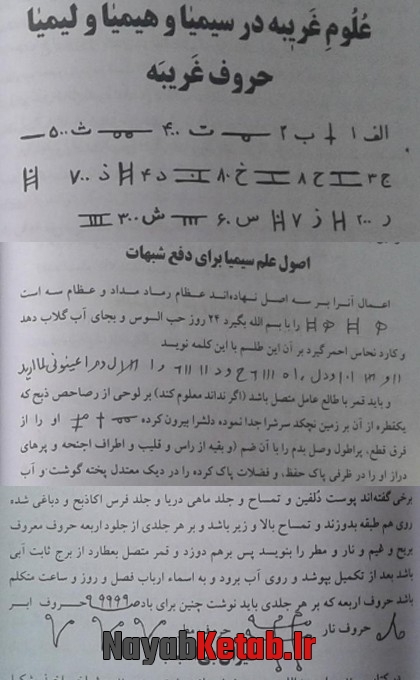 عُلُومِ غَریٖبه در سیمیٰا و هیمیٰا و لیمیٰا
حروف غَریبَه
الف ۱ ب ۲ ت ۴۰۰ ث ۵۰۰
ج ۳ ح ۸ خ ۸۰ د ۴ ذ ۷۰۰
ر ۲۰۰ ز ۷ س ۶۰ ش ۳۰۰
اصول علم سیمیا برای دفع شبهات
اعمال آنرا بر سه اصل نهاده‌اند عظام رماد مداد و عظام سه است
را با بسم الله بگیرد ۲۴ روز حب السوس و بجای آب گلاب دهد
و کارد نحاس احمر گیرد بر آن این طلسم با این کلمه نویسد
و باید قمر با طالع عامل متصل باشد (اگر نداند معلوم کند) بر لوحی از رصاصص ذبح که
یکقطره از آن بر زمین نچکد سرش را جدا نموده دلشرا بیرون کرده او را از
فرق قطع، پراطول وصل بدم را با آن ضم (و بقیه از راس و قلیب و اطراف اجنحه و پرهای
دراز او را در ظرفی پاک حفظ، و فضلات پاک کرده را در دیک معتدل پخته گوشت و آب
برخی گفته‌اند پوست دُلفین و تمساح و جلد ماهی دریا و جلد قرس اکاذبح و دباغی شده
روی هم طبقه بدوزند و تمساح بالا و زیر باشد و بر هر جلدی از جلود اربعه حروف معروف
بریح و غیم و نار و مطر را بنویسد پس برهم دوزد و قمر متصل بعطارد از برج ثابت آبی
باشد بعد از تکمیل بپوشد و روی آب برود و به اسماء ارباب فصل و روز و ساعت متکلم
باشد حروف اربعه که بر هر جلدی باید نوشت چنین برای باد حروف ابر
حروف نار
NayabKetab.Ir